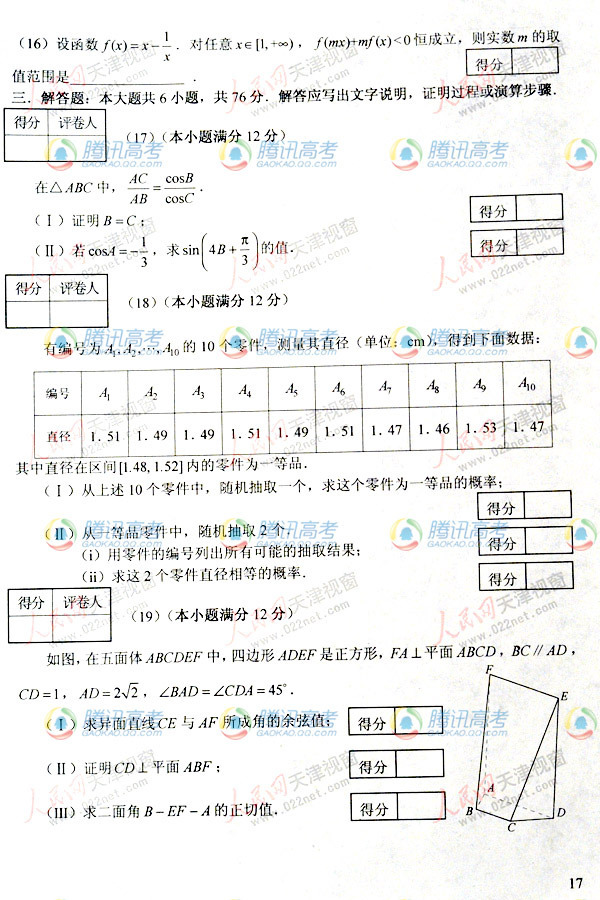 (16) 设函数 f(x)=x-1/x. 对任意 x∈[1,+∞), f(mx)+mf(x)<0 恒成立, 则实数 m 的取
值范围是__________.
得分
三. 解答题: 本大题共 6 小题, 共 76 分. 解答应写出文字说明, 证明过程或演算步骤.
得分 评卷人
(17) (本小题满分 12 分)
腾讯高考 腾讯高考 腾讯高考
GAOKAO.QQ.COM GAOKAO.QQ.COM GAOKAO.QQ.COM
在△ABC 中, AC/AB = cosB/cosC.
(Ⅰ) 证明 B=C;
得分
(Ⅱ) 若 cosA=-1/3, 求 sin(4B+π/3) 的值.
得分
人民网 天津视窗
www.022net.com
得分 评卷人
(18) (本小题满分 12 分)
腾讯高考 腾讯高考 腾讯高考
GAOKAO.QQ.COM GAOKAO.QQ.COM GAOKAO.QQ.COM
有编号为 A₁,A₂,⋯,A₁₀ 的 10 个零件, 测量其直径 (单位: cm), 得到下面数据:
编号 A₁ A₂ A₃ A₄ A₅ A₆ A₇ A₈ A₉ A₁₀
直径 1.51 1.49 1.49 1.51 1.49 1.51 1.47 1.46 1.53 1.47
其中直径在区间[1.48,1.52]内的零件为一等品.
(Ⅰ) 从上述 10 个零件中, 随机抽取一个, 求这个零件为一等品的概率;
得分
(Ⅱ) 从一等品零件中, 随机抽取 2 个.
得分
(i) 用零件的编号列出所有可能的抽取结果;
(ii) 求这 2 个零件直径相等的概率.
得分
得分 评卷人
(19) (本小题满分 12 分)
如图, 在五面体 ABCDEF 中, 四边形 ADEF 是正方形, FA⊥平面 ABCD, BC∥AD,
CD=1, AD=2√2, ∠BAD=∠CDA=45°.
(Ⅰ) 求异面直线CE 与 AF 所成角的余弦值;
得分
(Ⅱ) 证明CD⊥平面 ABF;
得分
(Ⅲ) 求二面角 B-EF-A 的正切值.
得分
F
E
A
B
D
C
17